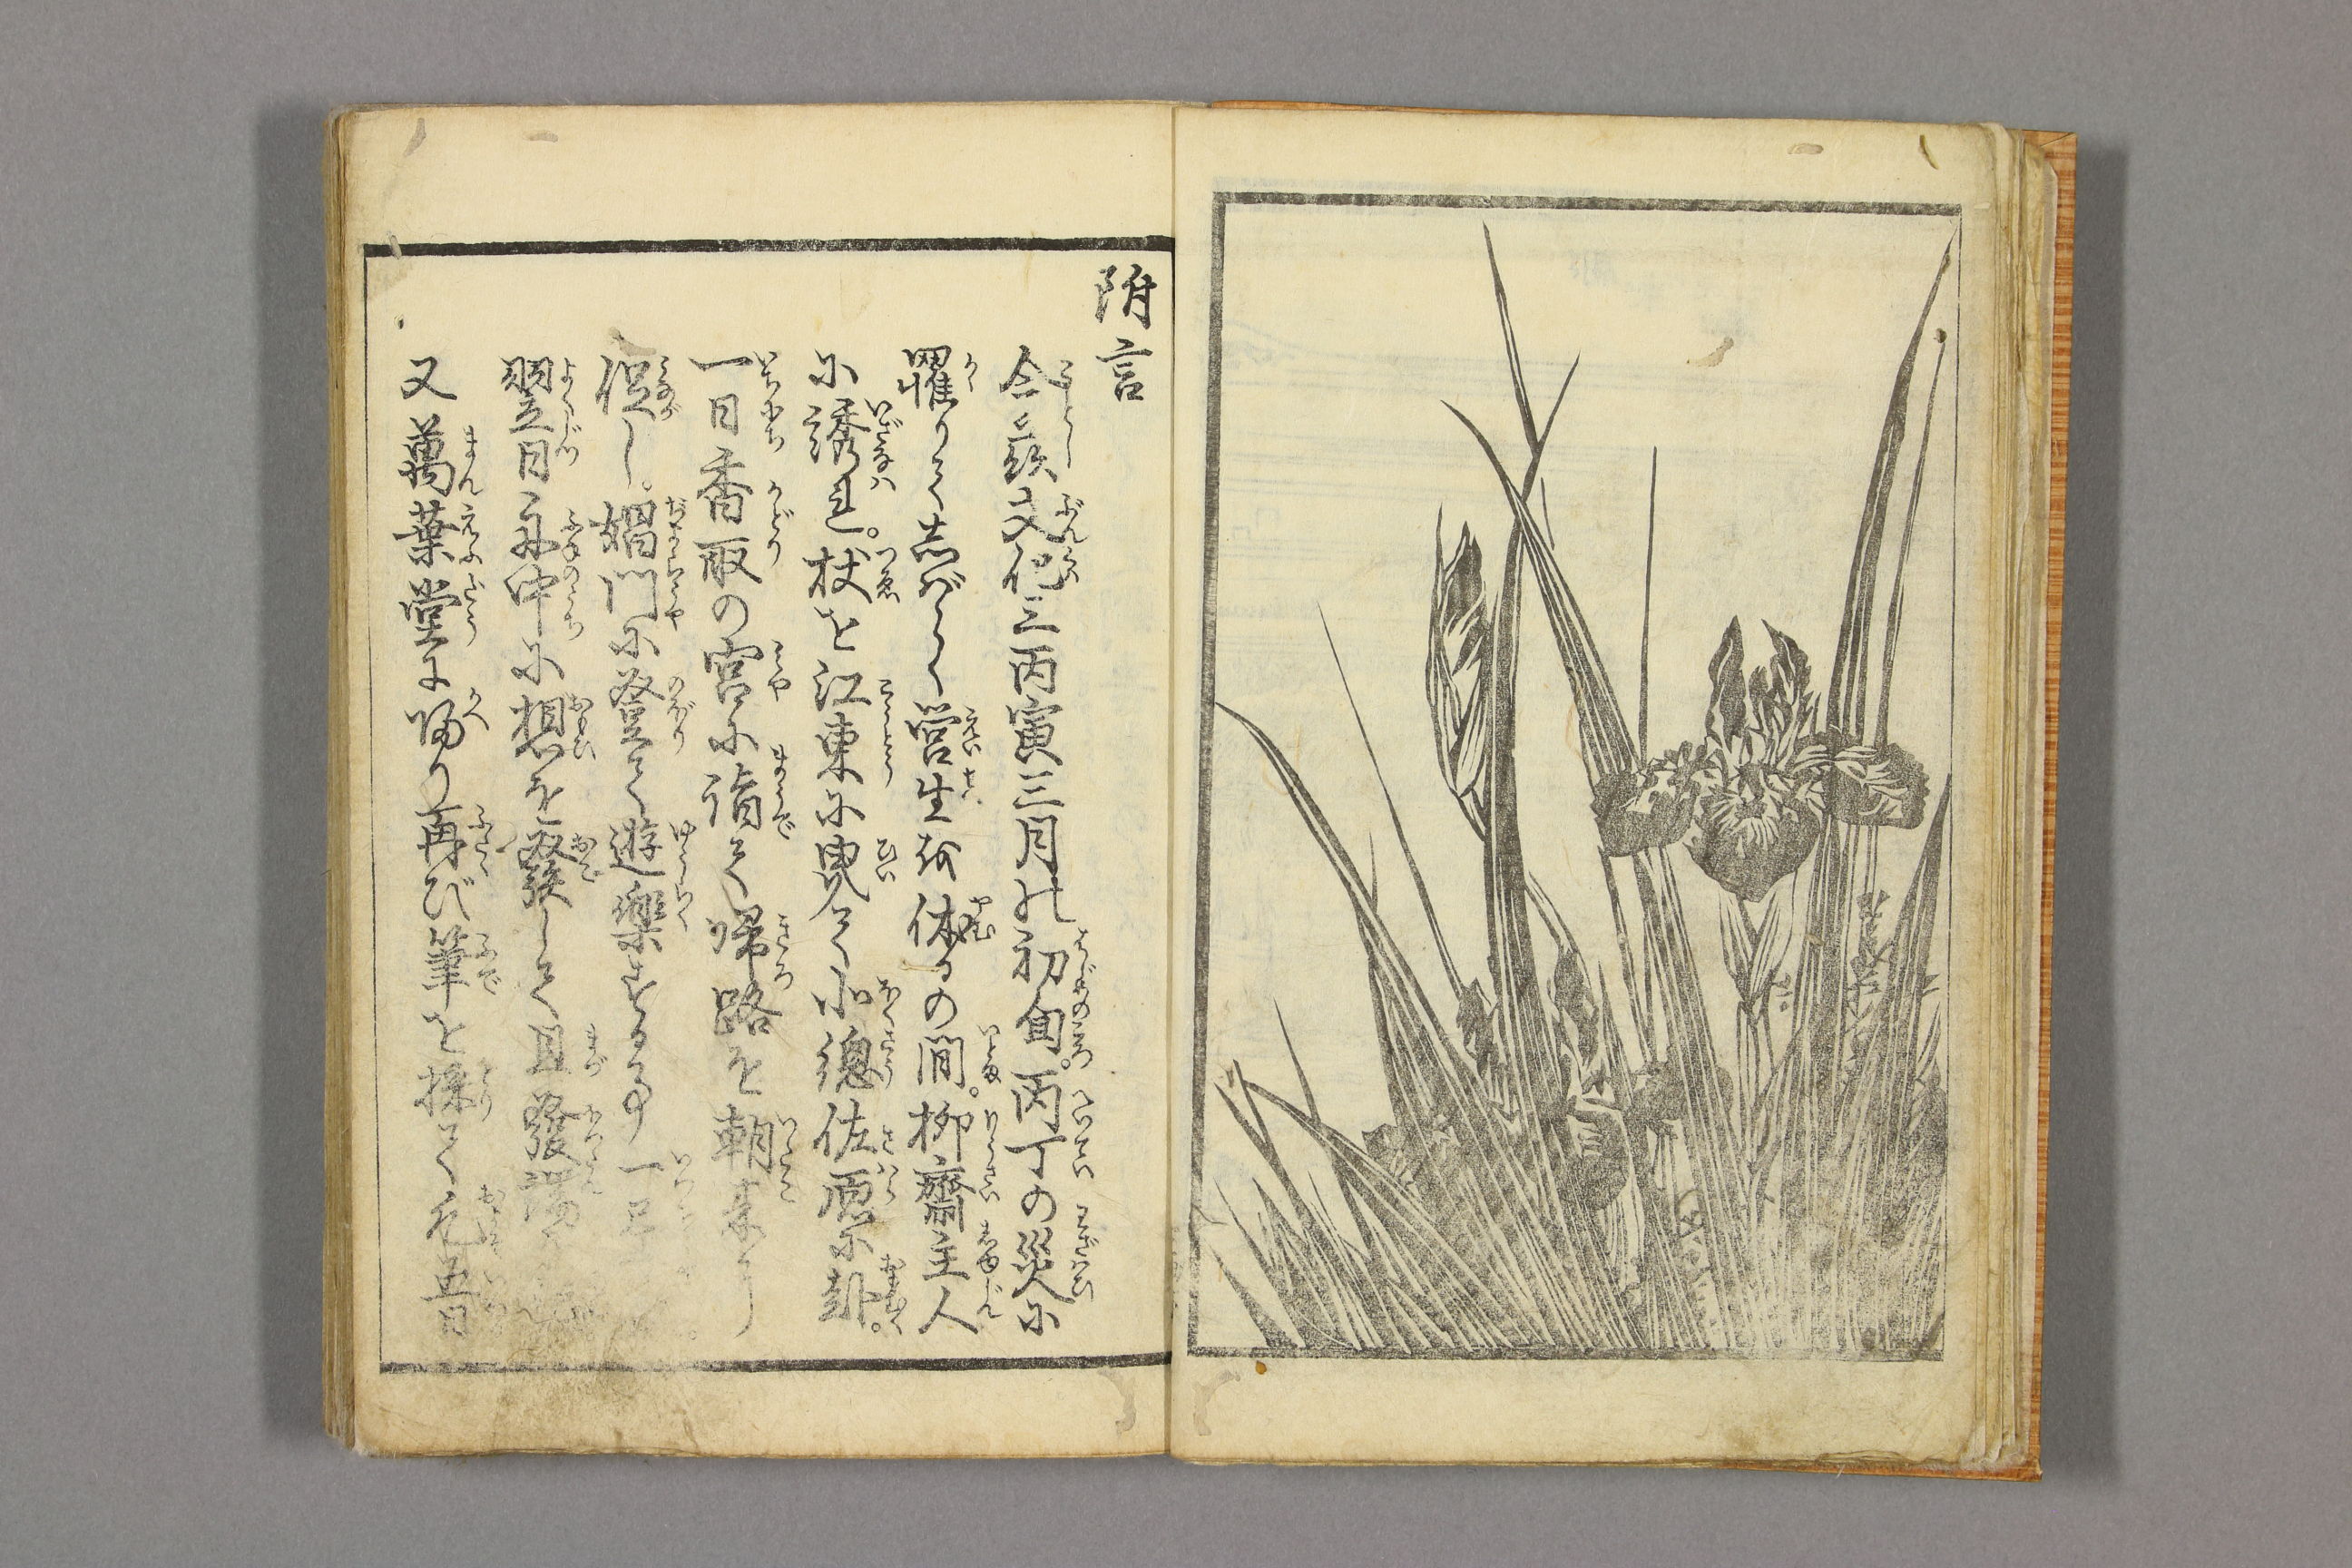 附言
今歳文化三丙寅三月の初旬。丙丁の災に
罹りてしばらく営生を休るの間。柳齋主人
に誘れ。杖を江東に曳て小總佐原に赴。
一日香取の宮に詣て帰路を朝来
促し。娼門に登て遊樂する事一
翌日舟中に想を發して且發
又萬葉堂に帰り再び筆を採て